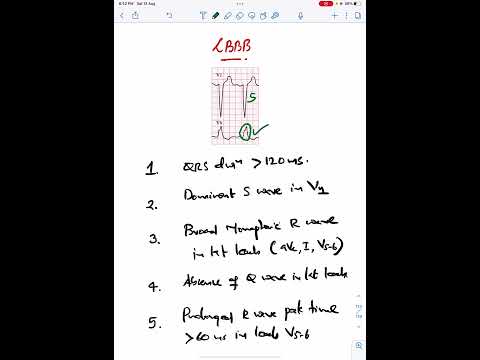 6:12 PM Sat 12 Aug
LBBB
V1
S
V6
1. QRS durn > 120 ms.
2. Dominant S wave in V1
3. Broad Monophasic R wave
in lat leads (aVL, I, V5-6)
4. Absence of Q wave in lat leads
5. Prolonged R wave peak time
> 60 ms in leads V5-6